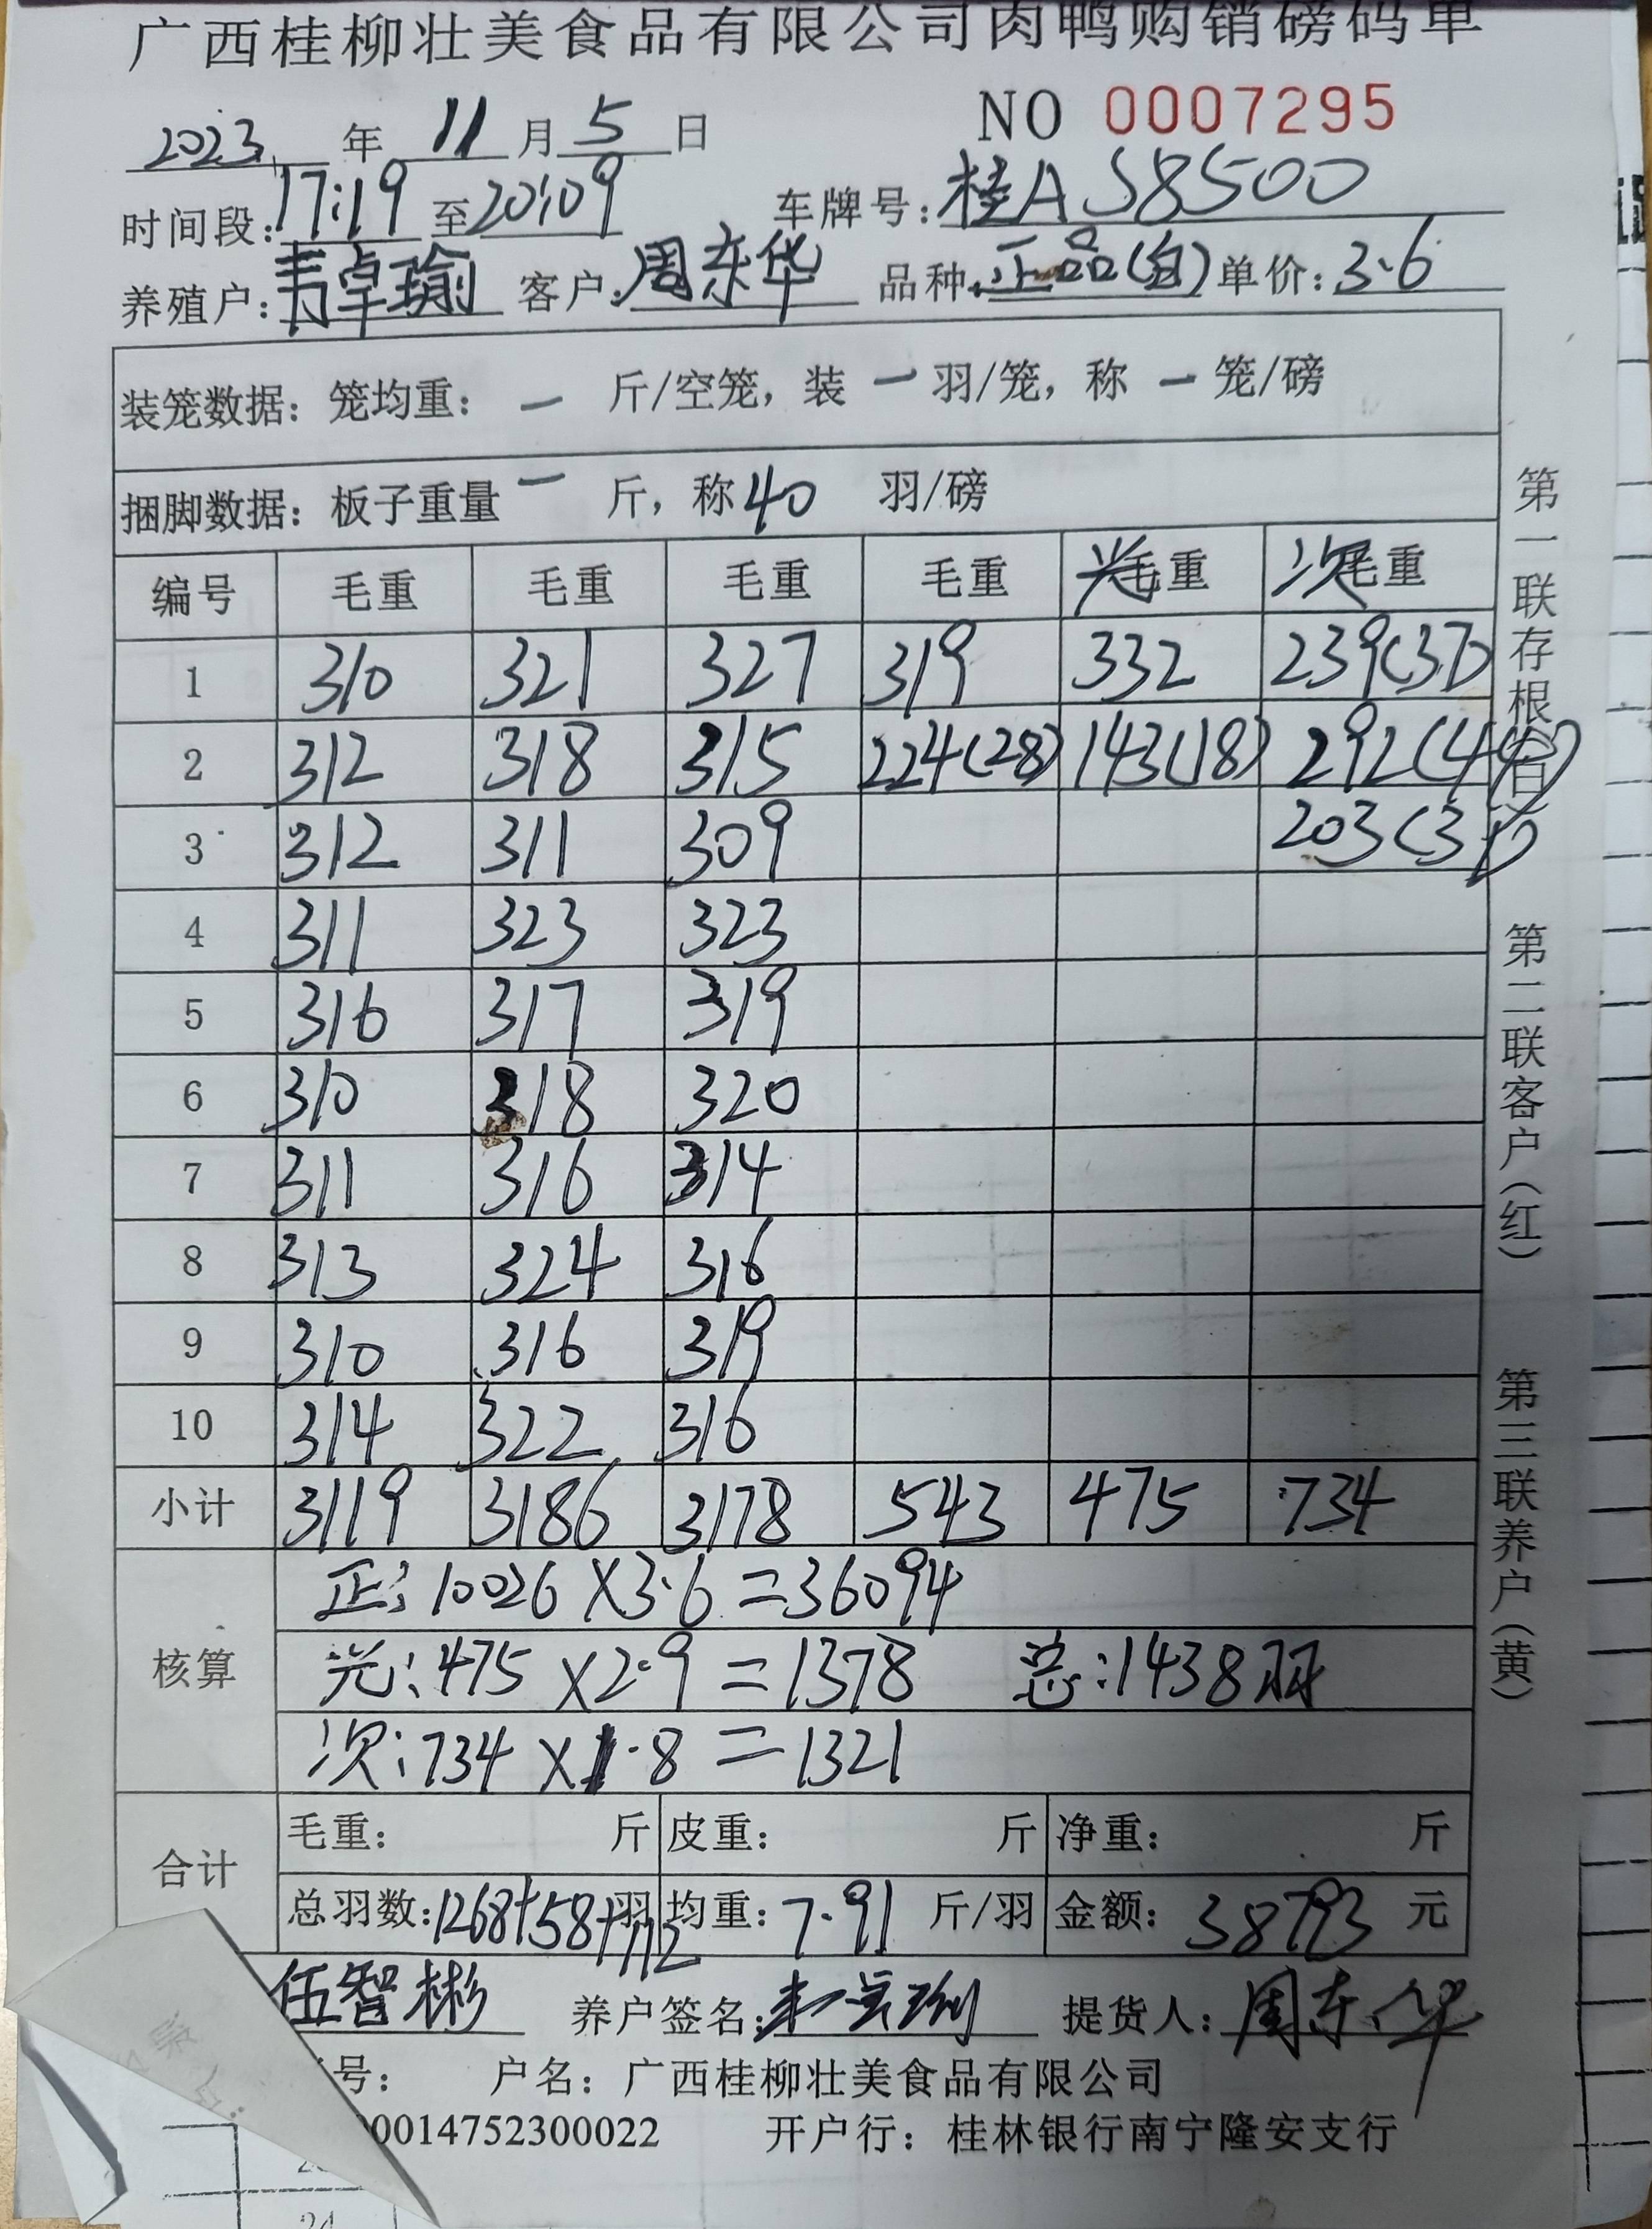 广西桂柳壮美食品有限公司肉鸭购销磅码单
NO 0007295
2023 年 11 月 5 日
时间段: 17:19 至 20:09 车牌号: 桂A S8500
养殖户: 韦卓瑜 客户: 周东华 品种: 正品(白) 单价: 3.6
装笼数据: 笼均重: 一 斤/空笼, 装 一 羽/笼, 称 一 笼/磅
捆脚数据: 板子重量 一 斤, 称 40 羽/磅
编号 毛重 毛重 毛重 毛重 光毛重 次毛重
1 310 321 327 319 332 239(37)
2 312 318 315 224(28) 143(18) 292(44)
3 312 311 309 203(31)
4 311 323 323
5 316 317 319
6 310 318 320
7 311 316 314
8 313 324 316
9 310 316 319
10 314 322 316
小计 3119 3186 3178 543 475 734
核算
正: 10026×3.6=36094
光: 475×2.9=1378 总: 1438羽
次: 734×1.8=1321
合计
毛重: 斤 皮重: 斤 净重: 斤
总羽数: 1268+58+112 羽 均重: 7.91 斤/羽 金额: 38793 元
伍智彬 养户签名: 提货人: 周东华
号: 户名: 广西桂柳壮美食品有限公司
00014752300022 开户行: 桂林银行南宁隆安支行
第一联存根(白)
第二联客户(红)
第三联养户(黄)
24